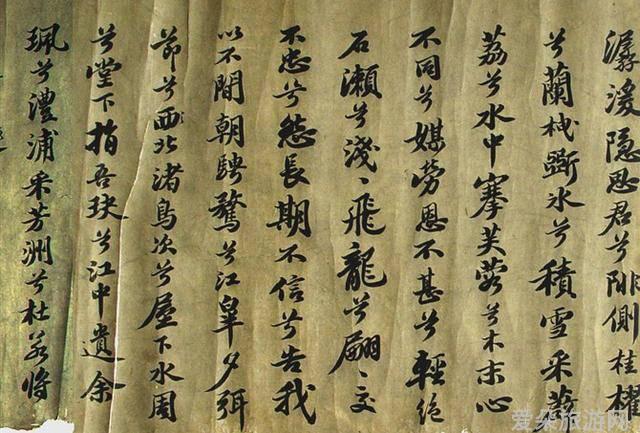 潺湲隱思君兮陫側桂櫂
兮蘭枻斲氷兮積雪采薜
荔兮水中搴芙蓉兮木末心
不同兮媒勞恩不甚兮輕絕
石瀨兮淺〻飛龍兮翩〻交
不忠兮怨長期不信兮告我
以不閒朝騁騖兮江皋夕弭
節兮西北渚鳥次兮屋下水周
兮堂下指吾玦兮江中遺余
珮兮澧浦采芳洲兮杜若將
爱朵旅游网